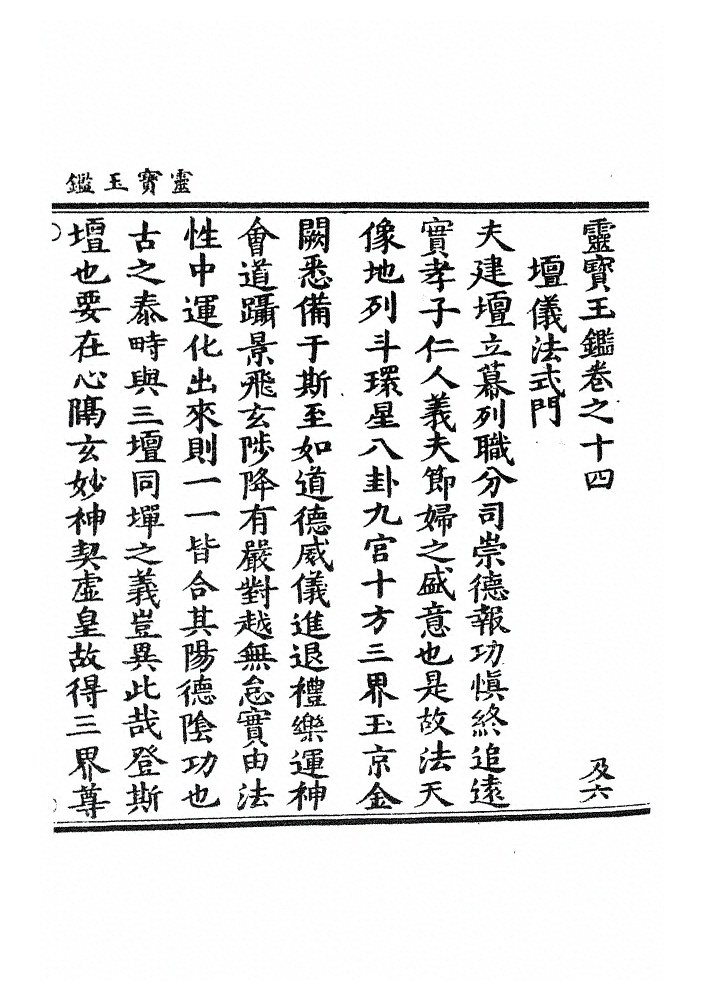 靈寶玉鑑
靈寶玉鑑卷之十四
及六
壇儀法式門
夫建壇立幕列職分司崇德報功慎終追遠
實孝子仁人義夫節婦之盛意也是故法天
像地列斗環星八卦九宫十方三界玉京金
闕悉備于斯至如道德威儀進退禮樂運神
會道躡景飛玄陟降有嚴對越無怠實由法
性中運化出來則一一皆合其陽德陰功也
古之泰畤與三壇同墠之義豈異此哉登斯
壇也要在心隔玄妙神契虛皇故得三界尊